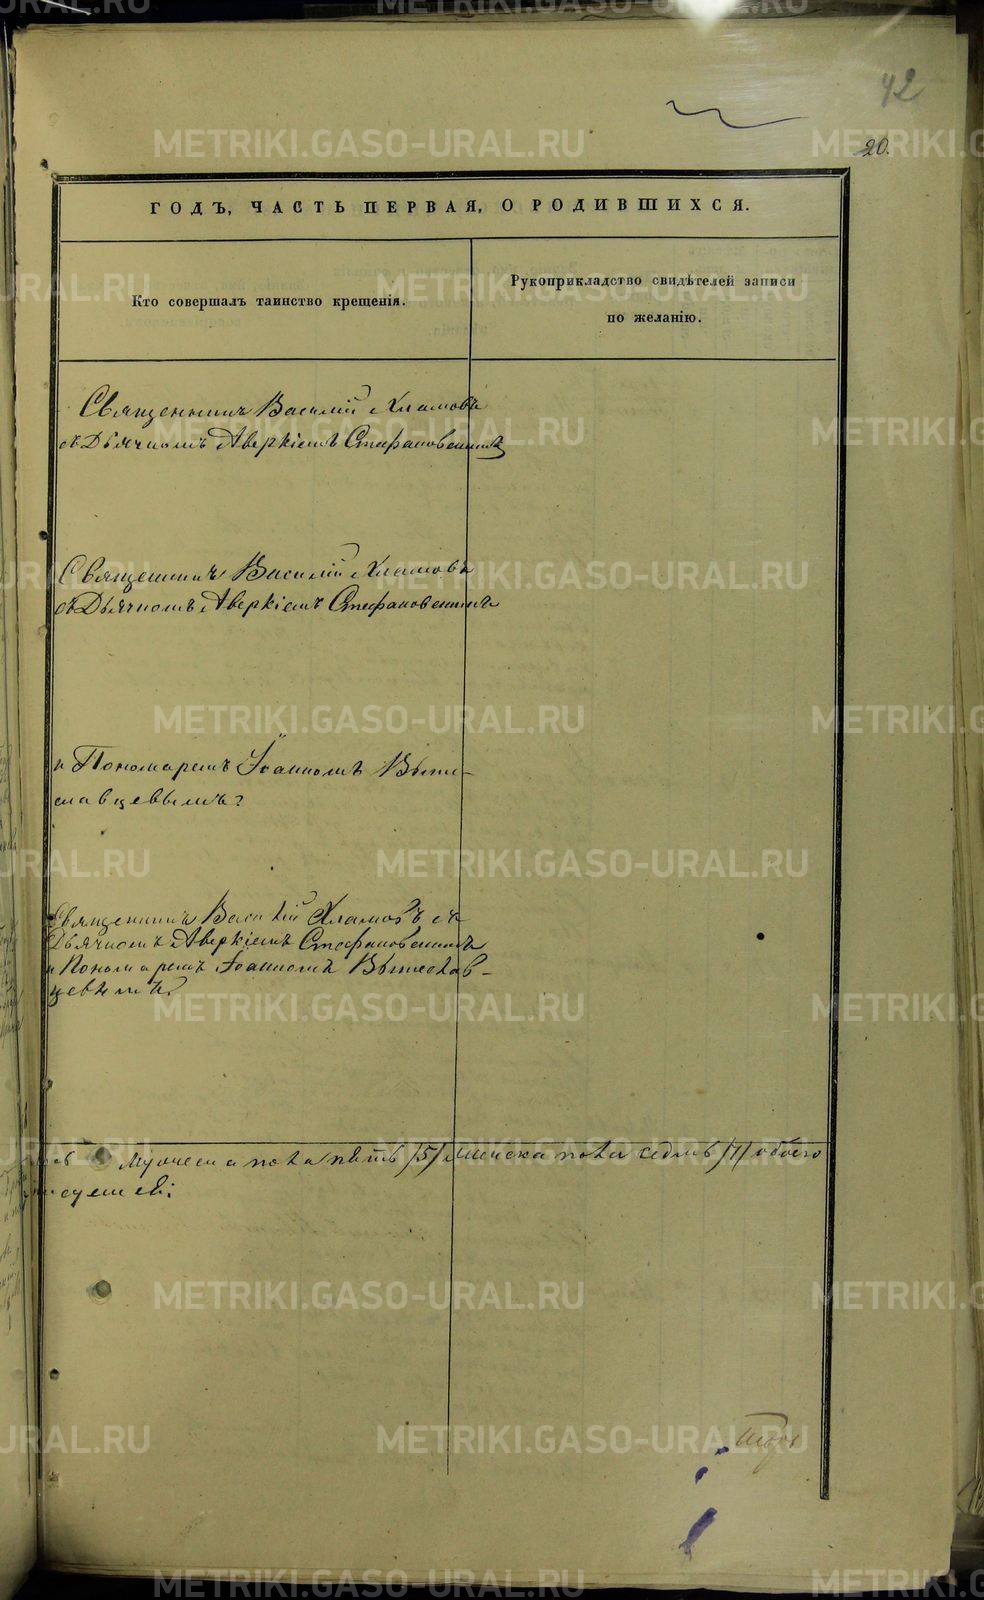 42
20.
ГОДЪ, ЧАСТЬ ПЕРВАЯ, О РОДИВШИХСЯ.
Кто совершалъ таинство крещенія.
Рукоприкладство свидѣтелей записи
по желанію.
Священникъ Василій Хламовъ
съ Дьячкомъ Аверкіемъ Стефановскимъ
Священникъ Василій Хламовъ
съ Дьячкомъ Аверкіемъ Стефановскимъ
и Пономаремъ Іоанномъ Выши-
славцевымъ?
Священникъ Василій Хламовъ съ
Дьячкомъ Аверкіемъ Стефановскимъ
и Пономаремъ Іоанномъ Вышеслав-
цевымъ.
Мужеска пола пять /5/ Женска пола седмь /7/ обоего
METRIKI.GASO-URAL.RU